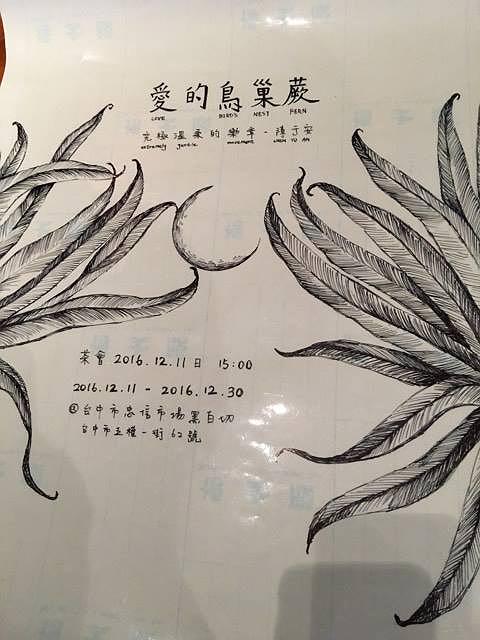 愛的鳥巢蕨
LOVE BIRD'S NEST FERN
究極溫柔的樂章-陳于安
extremely gentle movement CHEN YU AN
茶會 2016.12.11日 15:00
2016.12.11 - 2016.12.30
台中市忠信市場黑白切
台中市五權一街62號